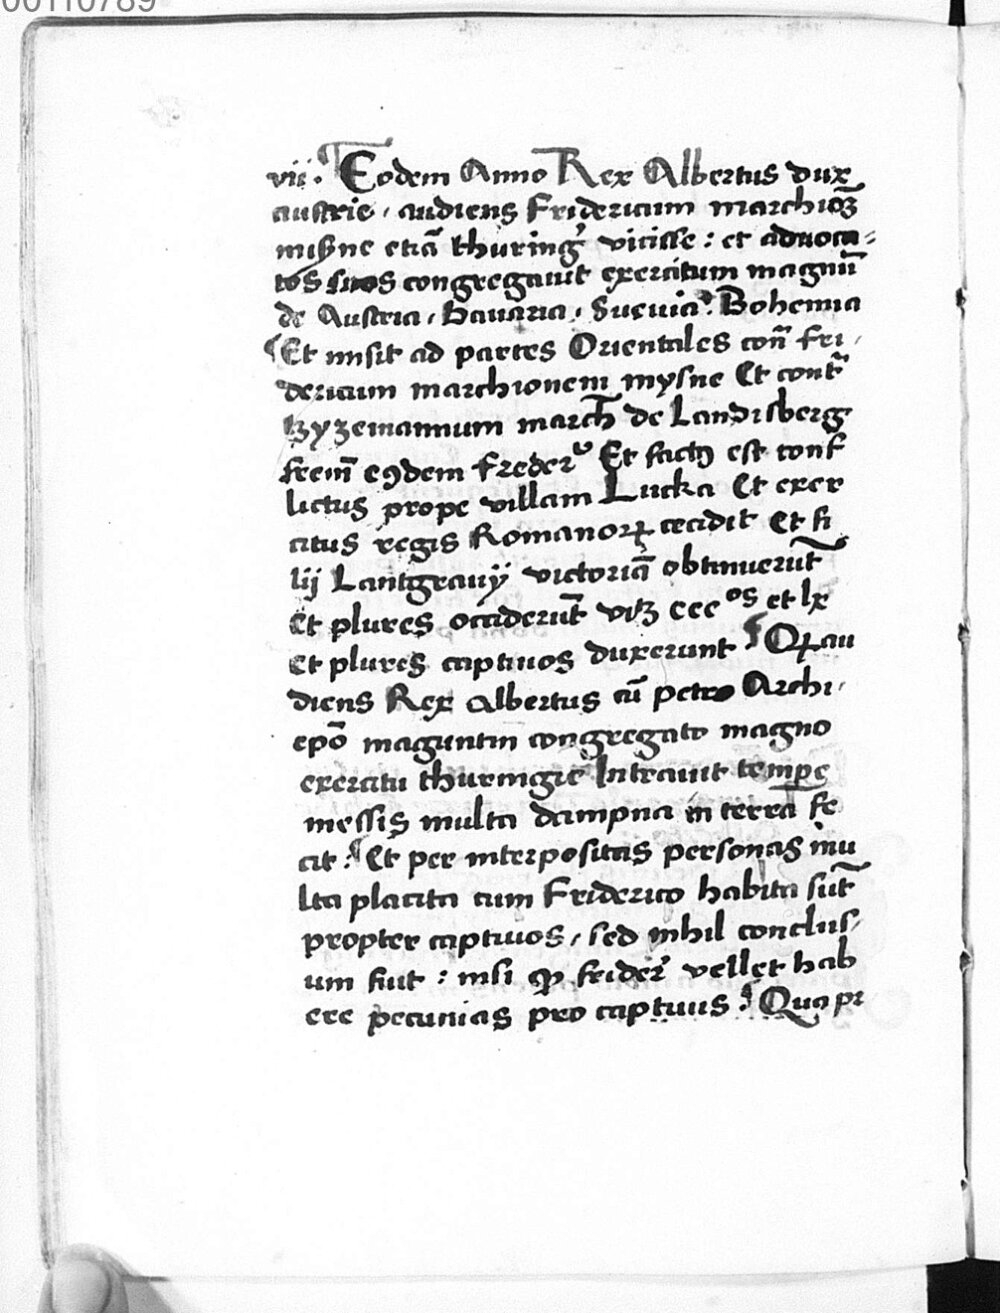 00110789
vii. Eodem Anno Rex Albertus dux
austrie, audiens Fridericum marchioꝫ
misne etiā thuringꝰ vicisse : et aduoca=
tos suos congregauit exercitum magnū
de Austria, Bauaria, Sueuia. Bohemia
¶Et misit ad partes Orientales con̄ fri,
dericum marchionem mysne Et cont̄
tyzemannum march̄ de Landisberg
frem̄ eꝯdem Freder Et factꝫ est conf
lictus prope villam Lucka Et exer
citus regis Romanoꝝ cecidit Et fi
lij Lantgrauij victoriā obtinuerūt
Et plures occiderūt vitꝫ cccos et lx
Et plures captiuos duxerunt ¶Qꝫ au
diens Rex Albertus cū petro Archi,
epō maguntin congregato magno
exercitu thuringiē Intrauit tempe
messis multa dampna in terra fe
cit : ¶Et per interpositas personas mu
lta placita cum Friderico habita sūt
propter captiuos, sed nihil conclus,
um fuit : nisi ꝙ frider̄ vellet hab
ere pecunias pro captiuis : ¶Qua pr